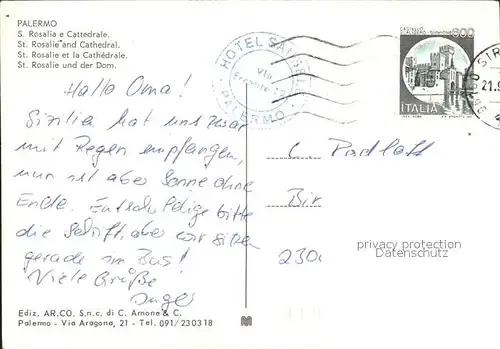 PALERMO
S. Rosalia e Cattedrale.
St. Rosalie and Cathedral.
St. Rosalie et la Cathédrale.
St. Rosalie und der Dom.
Hallo Oma!
Sizilien hat uns zwar
mit Regen empfangen,
nun ist aber Sonne ohne
Ende. Entschuldige bitte
die Schrift, aber wir sitzen
gerade im Bus!
Viele Grüße
Ediz. AR.CO. S.n.c. di C. Arnone & C.
Palermo - Via Aragona, 21 - Tel. 091/230318
HOTEL
Via
PALERMO
ITALIA
21.9
Bir
230
privacy protection
Datenschutz